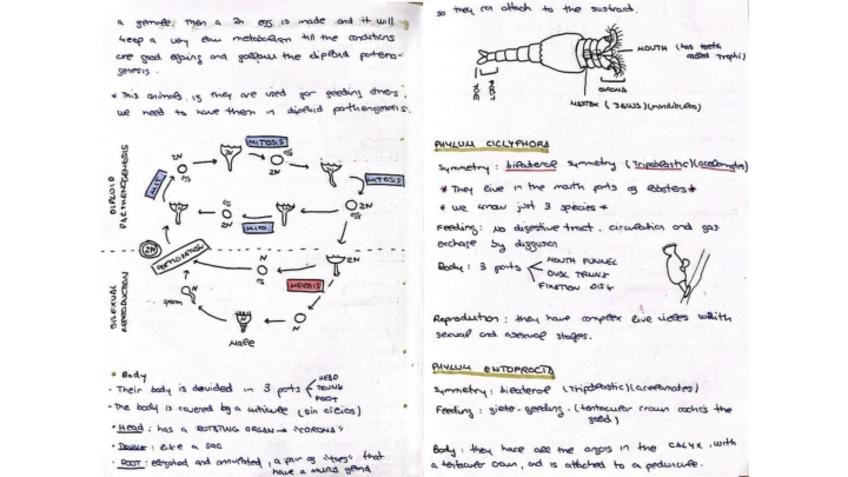 a female. Then a 2n egg is made and it will
keep a very low metabolism till the conditions
are good again and follow the diploid parteno-
genesis.
* This animals, if they are used for feeding others,
we need to have them in diploid parthenogenesis.
DIPLOID
PARTHENOGENESIS
2N
MITOSIS
2N
MITOSIS
2N
MIT
2N
MITO
2N
FERTILIZATION
N
2N
MEIOSIS
BISEXUAL
REPRODUCTION
sperm
N
Male
* Body
- Their body is devided in 3 parts
HEAD
TRUNK
FOOT
- The body is covered by a cuticule (sin
- Head: has a ROTATING ORGAN → "CORONA"
- TRUNK: like a sac
- FOOT: elongated and annulated, a pair of "toes" that
have a mucus gland
so they can attach to the sustract.
MOUTH (has teeth
called Trophi)
CORONA
MASTAX (JAWS)(mandibulas)
FOOT
TOE
PHYLUM CICLYPHORA
Symmetry: bilateral symmetry (Tripoblastic)(acelomates)
* They live in the mouth parts of lobsters*
* we know just 3 species *
Feeding: No digestive tract. circulation and gas
exchage by diffusion
Body: 3 parts
MOUTH FUNNEL
OVAL TRUNK
FIXATION DISK
Reproduction: they have complex live cicles with
sexual and asexual stages.
PHYLUM ENTOPROCTA
Symmetry: bilateral (Tripoblastic)(acelomates)
Feeding: filter-feeding. (tentacular crown catchs the
food)
Body: they have all the organs in the CALYX, with
a tentacular crown, and is attached to a peduncule.